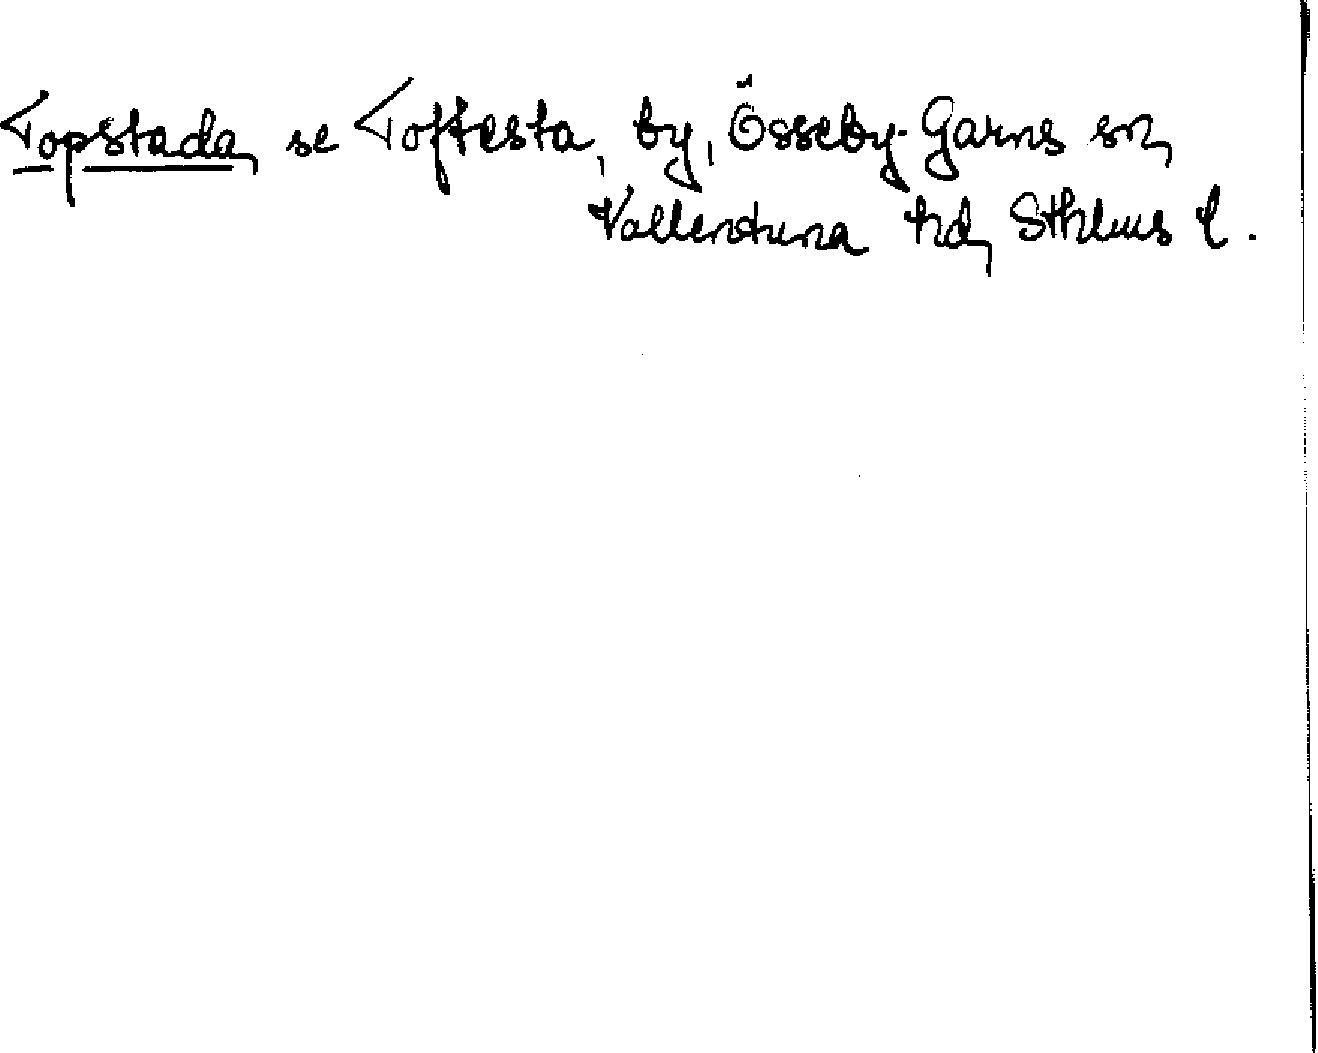 Topstada, se Toftesta, by, Össeby-Garns sn,
Vallentuna hd, Sthlms l.